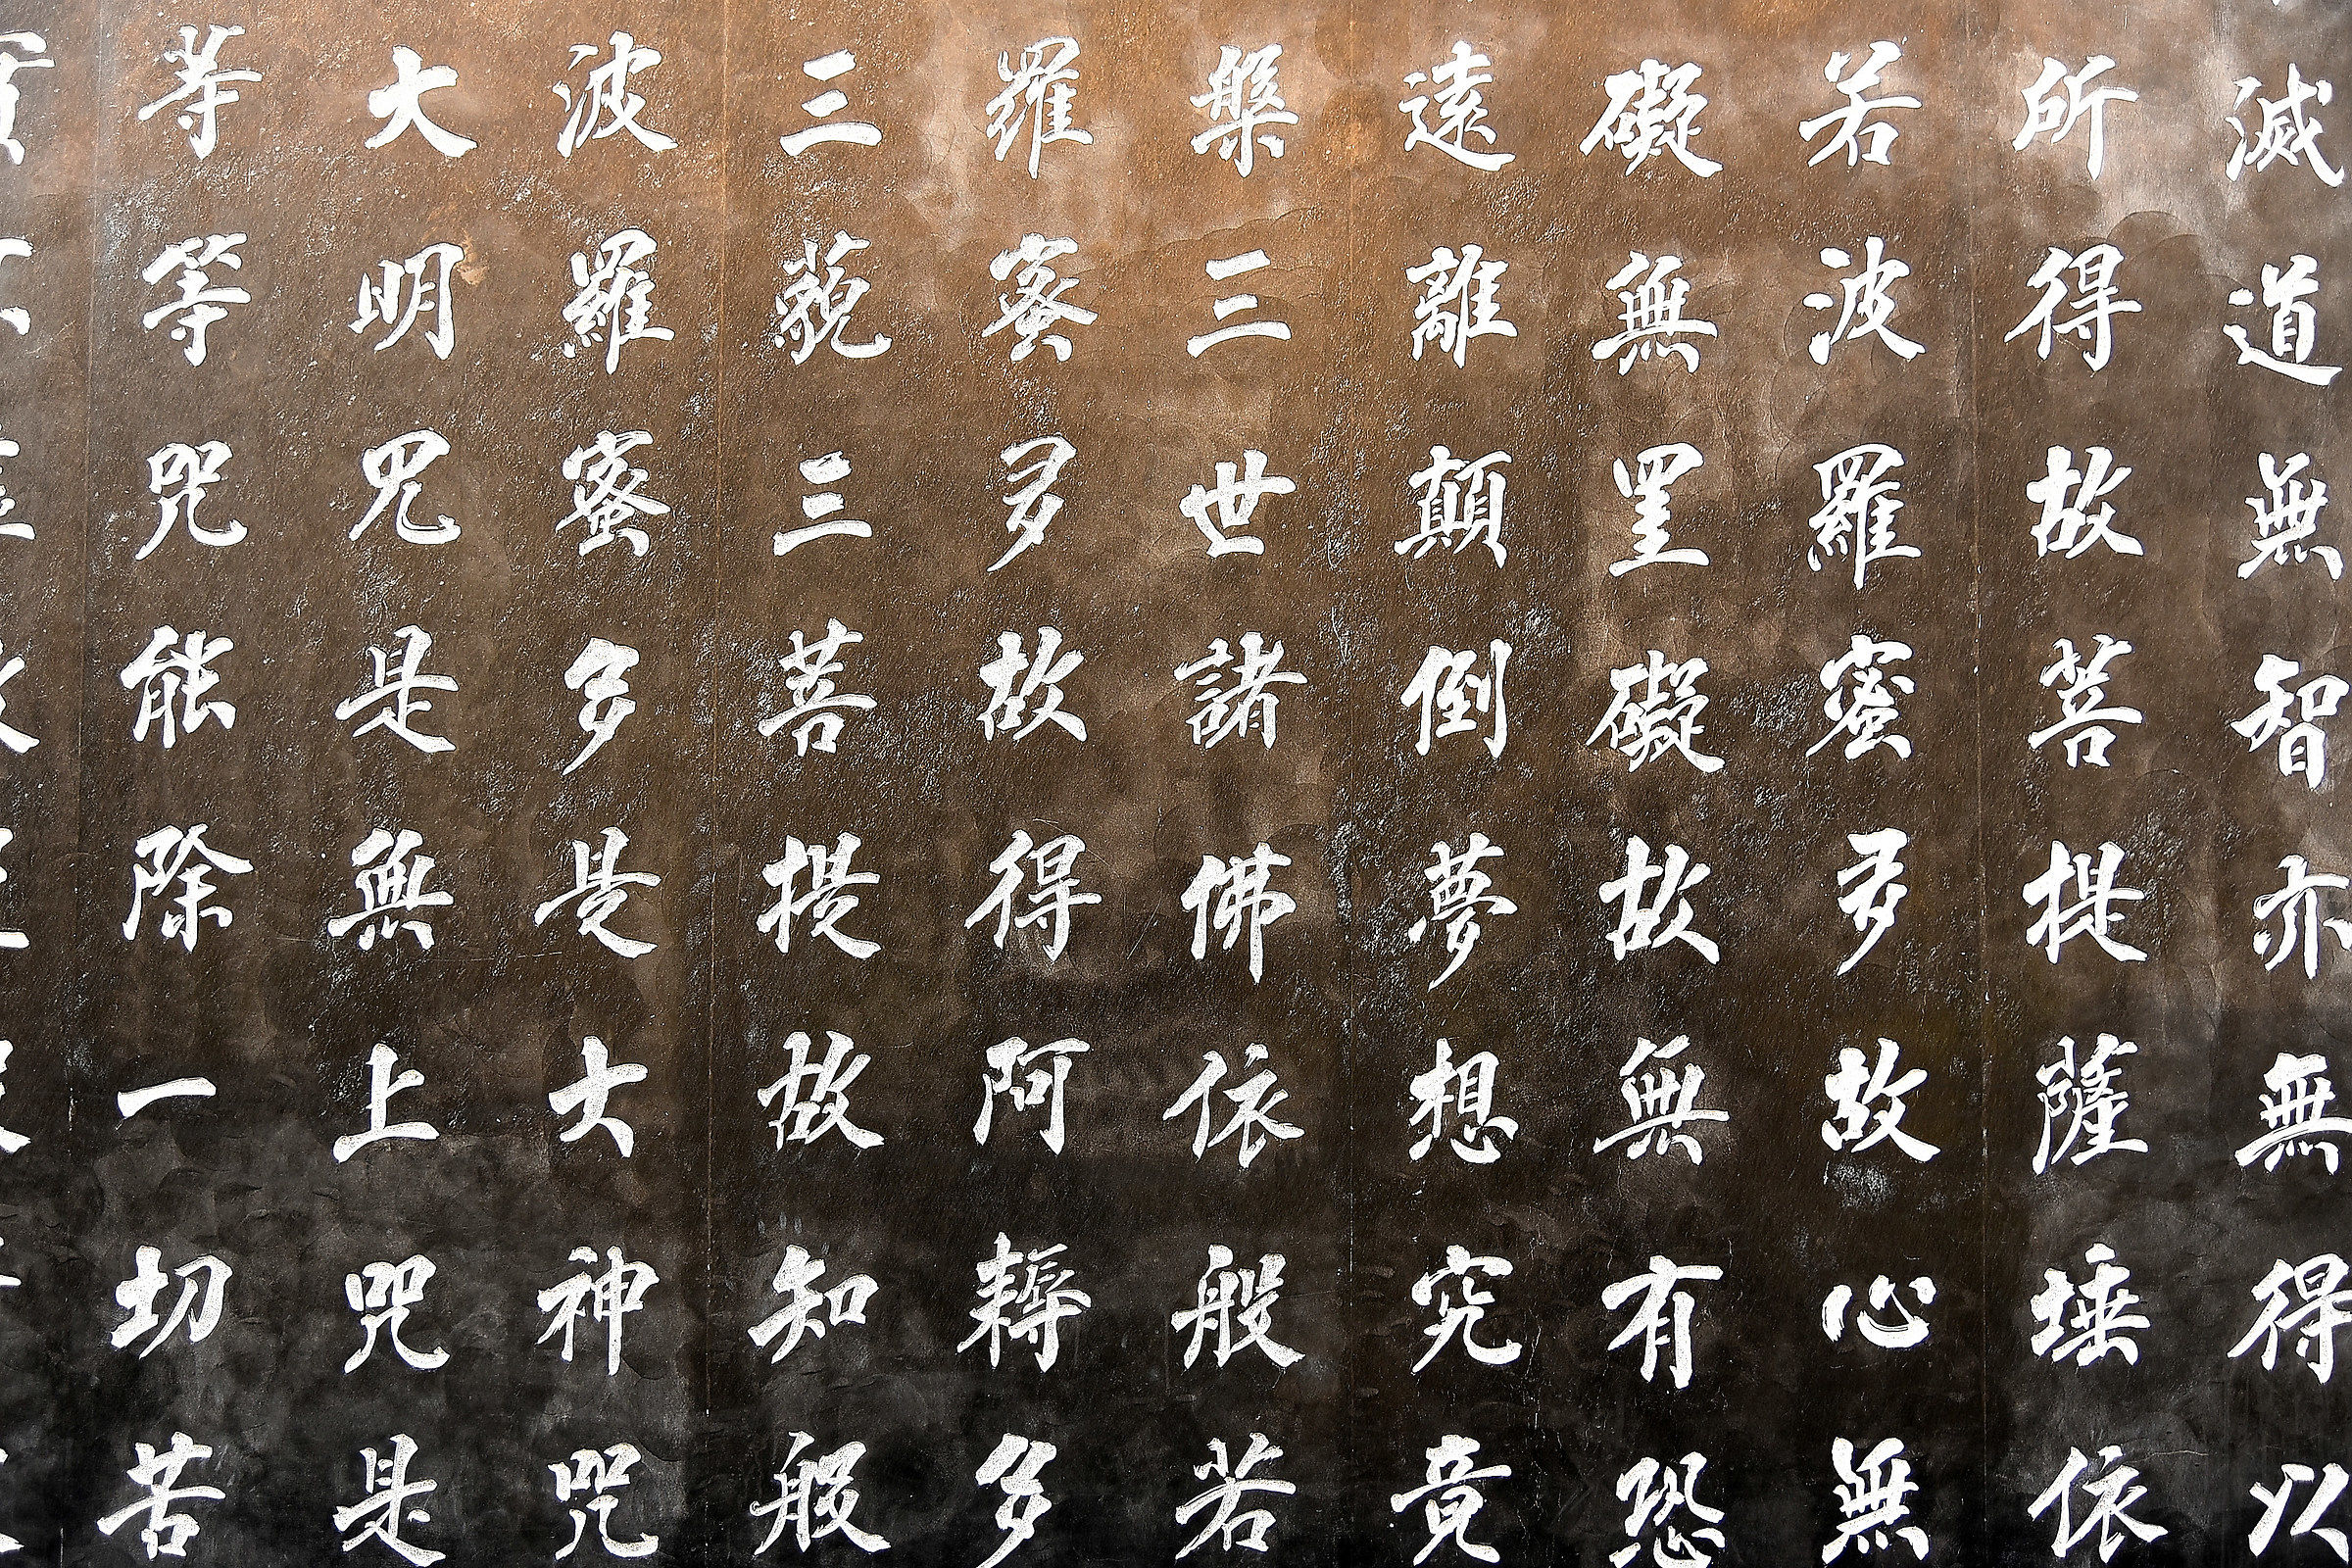 滅道無智亦無得以
所得故菩提薩埵依
若波羅蜜多故心無
礙無罣礙故無有恐
遠離顛倒夢想究竟
槃三世諸佛依般若
羅蜜多故得阿耨多
三藐三菩提故知般
波羅蜜多是大神咒
大明咒是無上咒是
等等咒能除一切苦